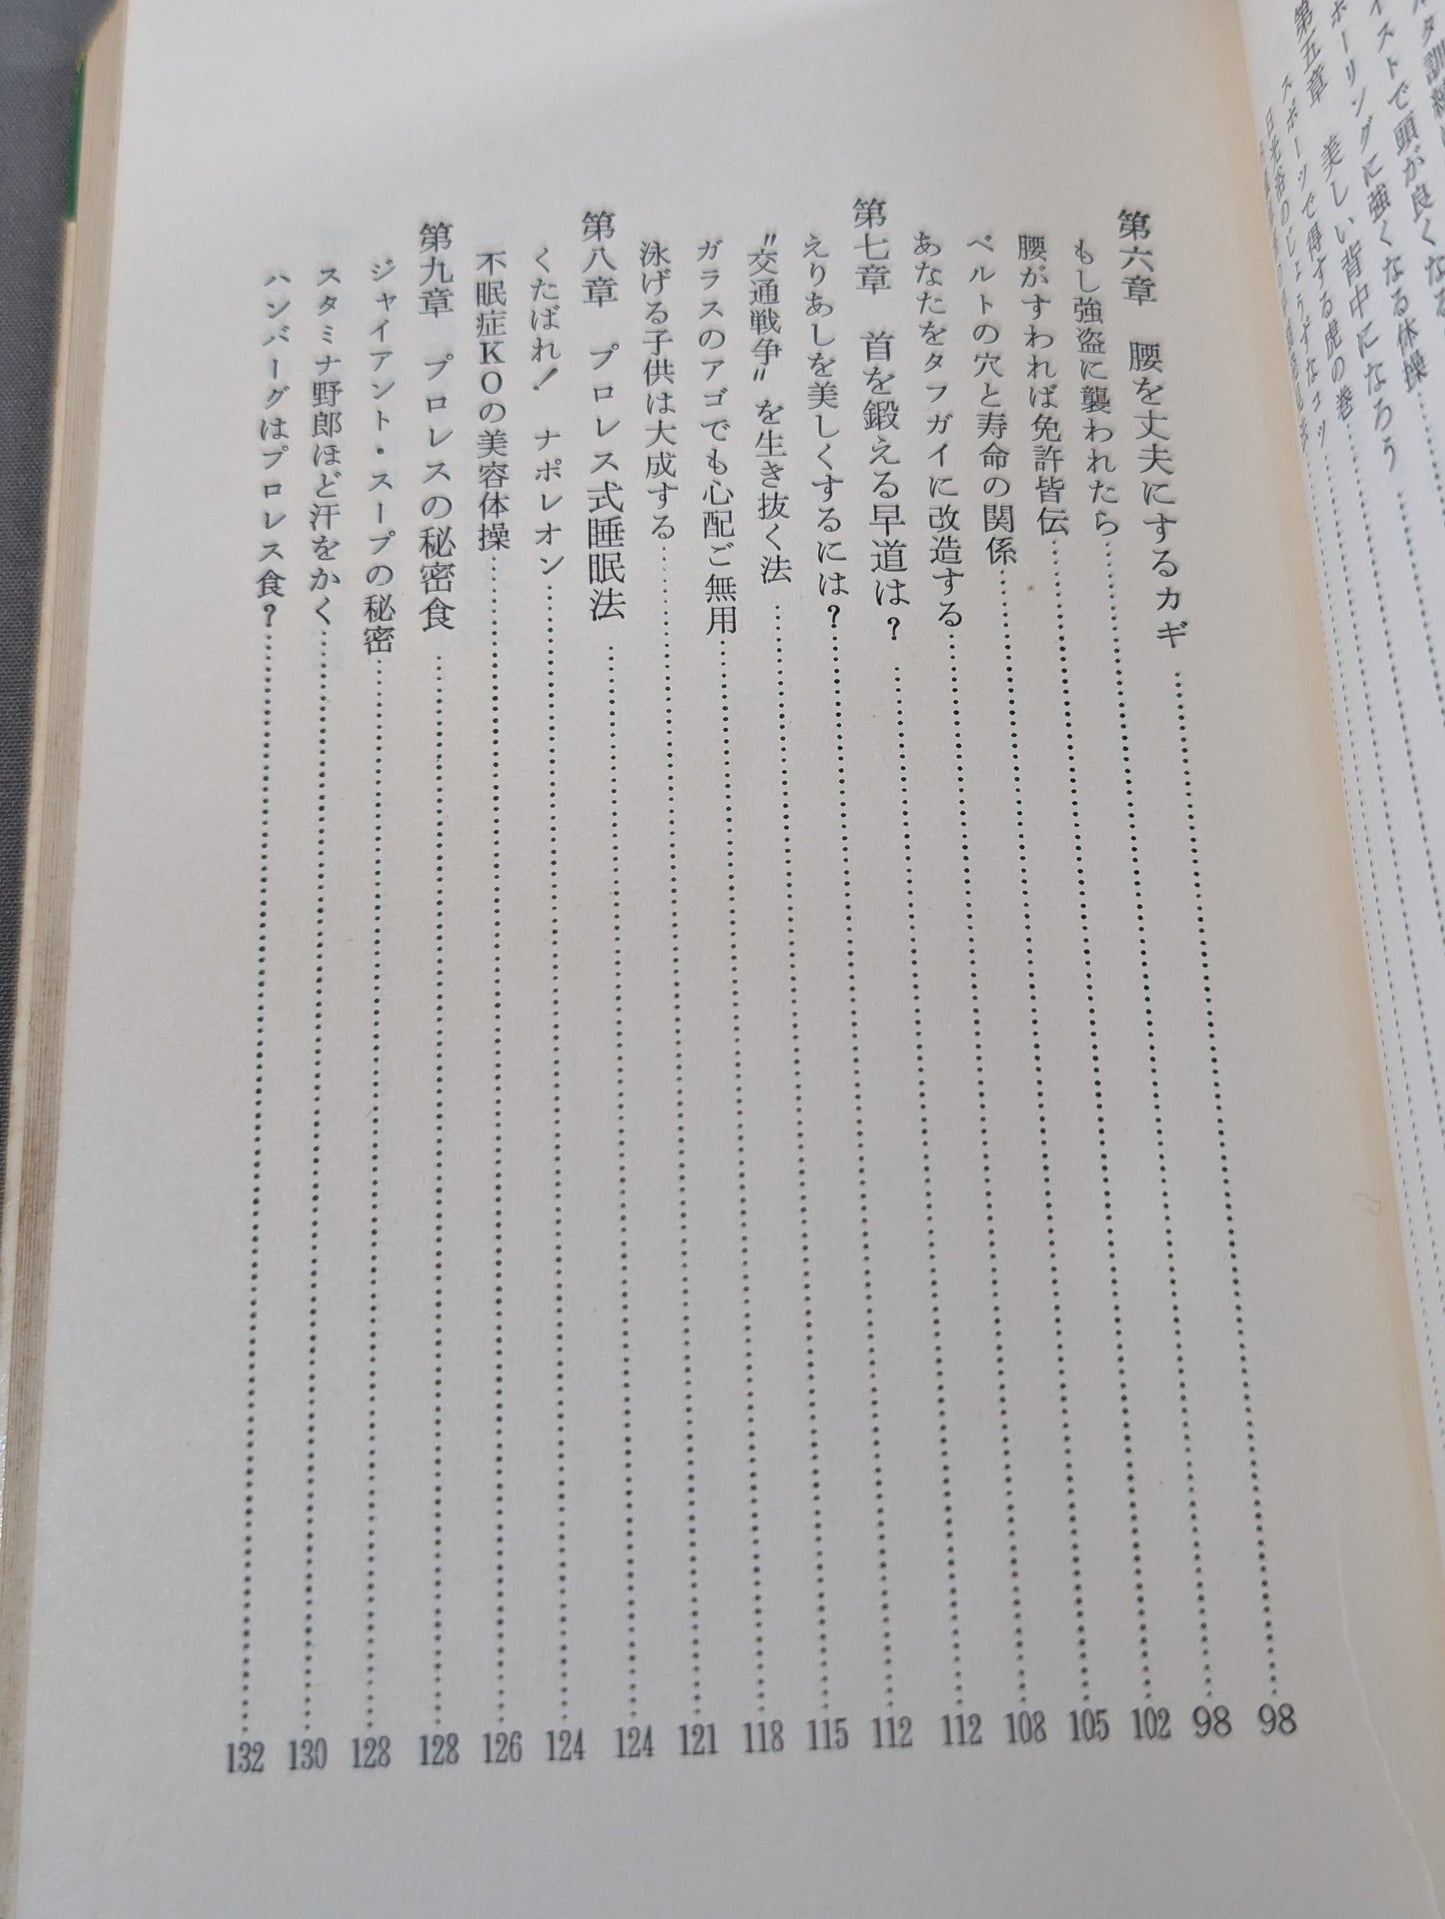 イストで頭が良くなる
ボーリングに強くなる体操
第五章　美しい背中になろう
スポーツで得する虎の巻
日光浴のじょうずなコツ
第六章　腰を丈夫にするカギ……98
もし強盗に襲われたら……98
腰がすわれば免許皆伝……102
ベルトの穴と寿命の関係……105
あなたをタフガイに改造する……108
第七章　首を鍛える早道は？……112
えりあしを美しくするには？……112
〝交通戦争〟を生き抜く法……115
ガラスのアゴでも心配ご無用……118
泳げる子供は大成する……121
第八章　プロレス式睡眠法……124
くたばれ！　ナポレオン……124
不眠症KOの美容体操……126
第九章　プロレスの秘密食……128
ジャイアント・スープの秘密……128
スタミナ野郎ほど汗をかく……130
ハンバーグはプロレス食？……132